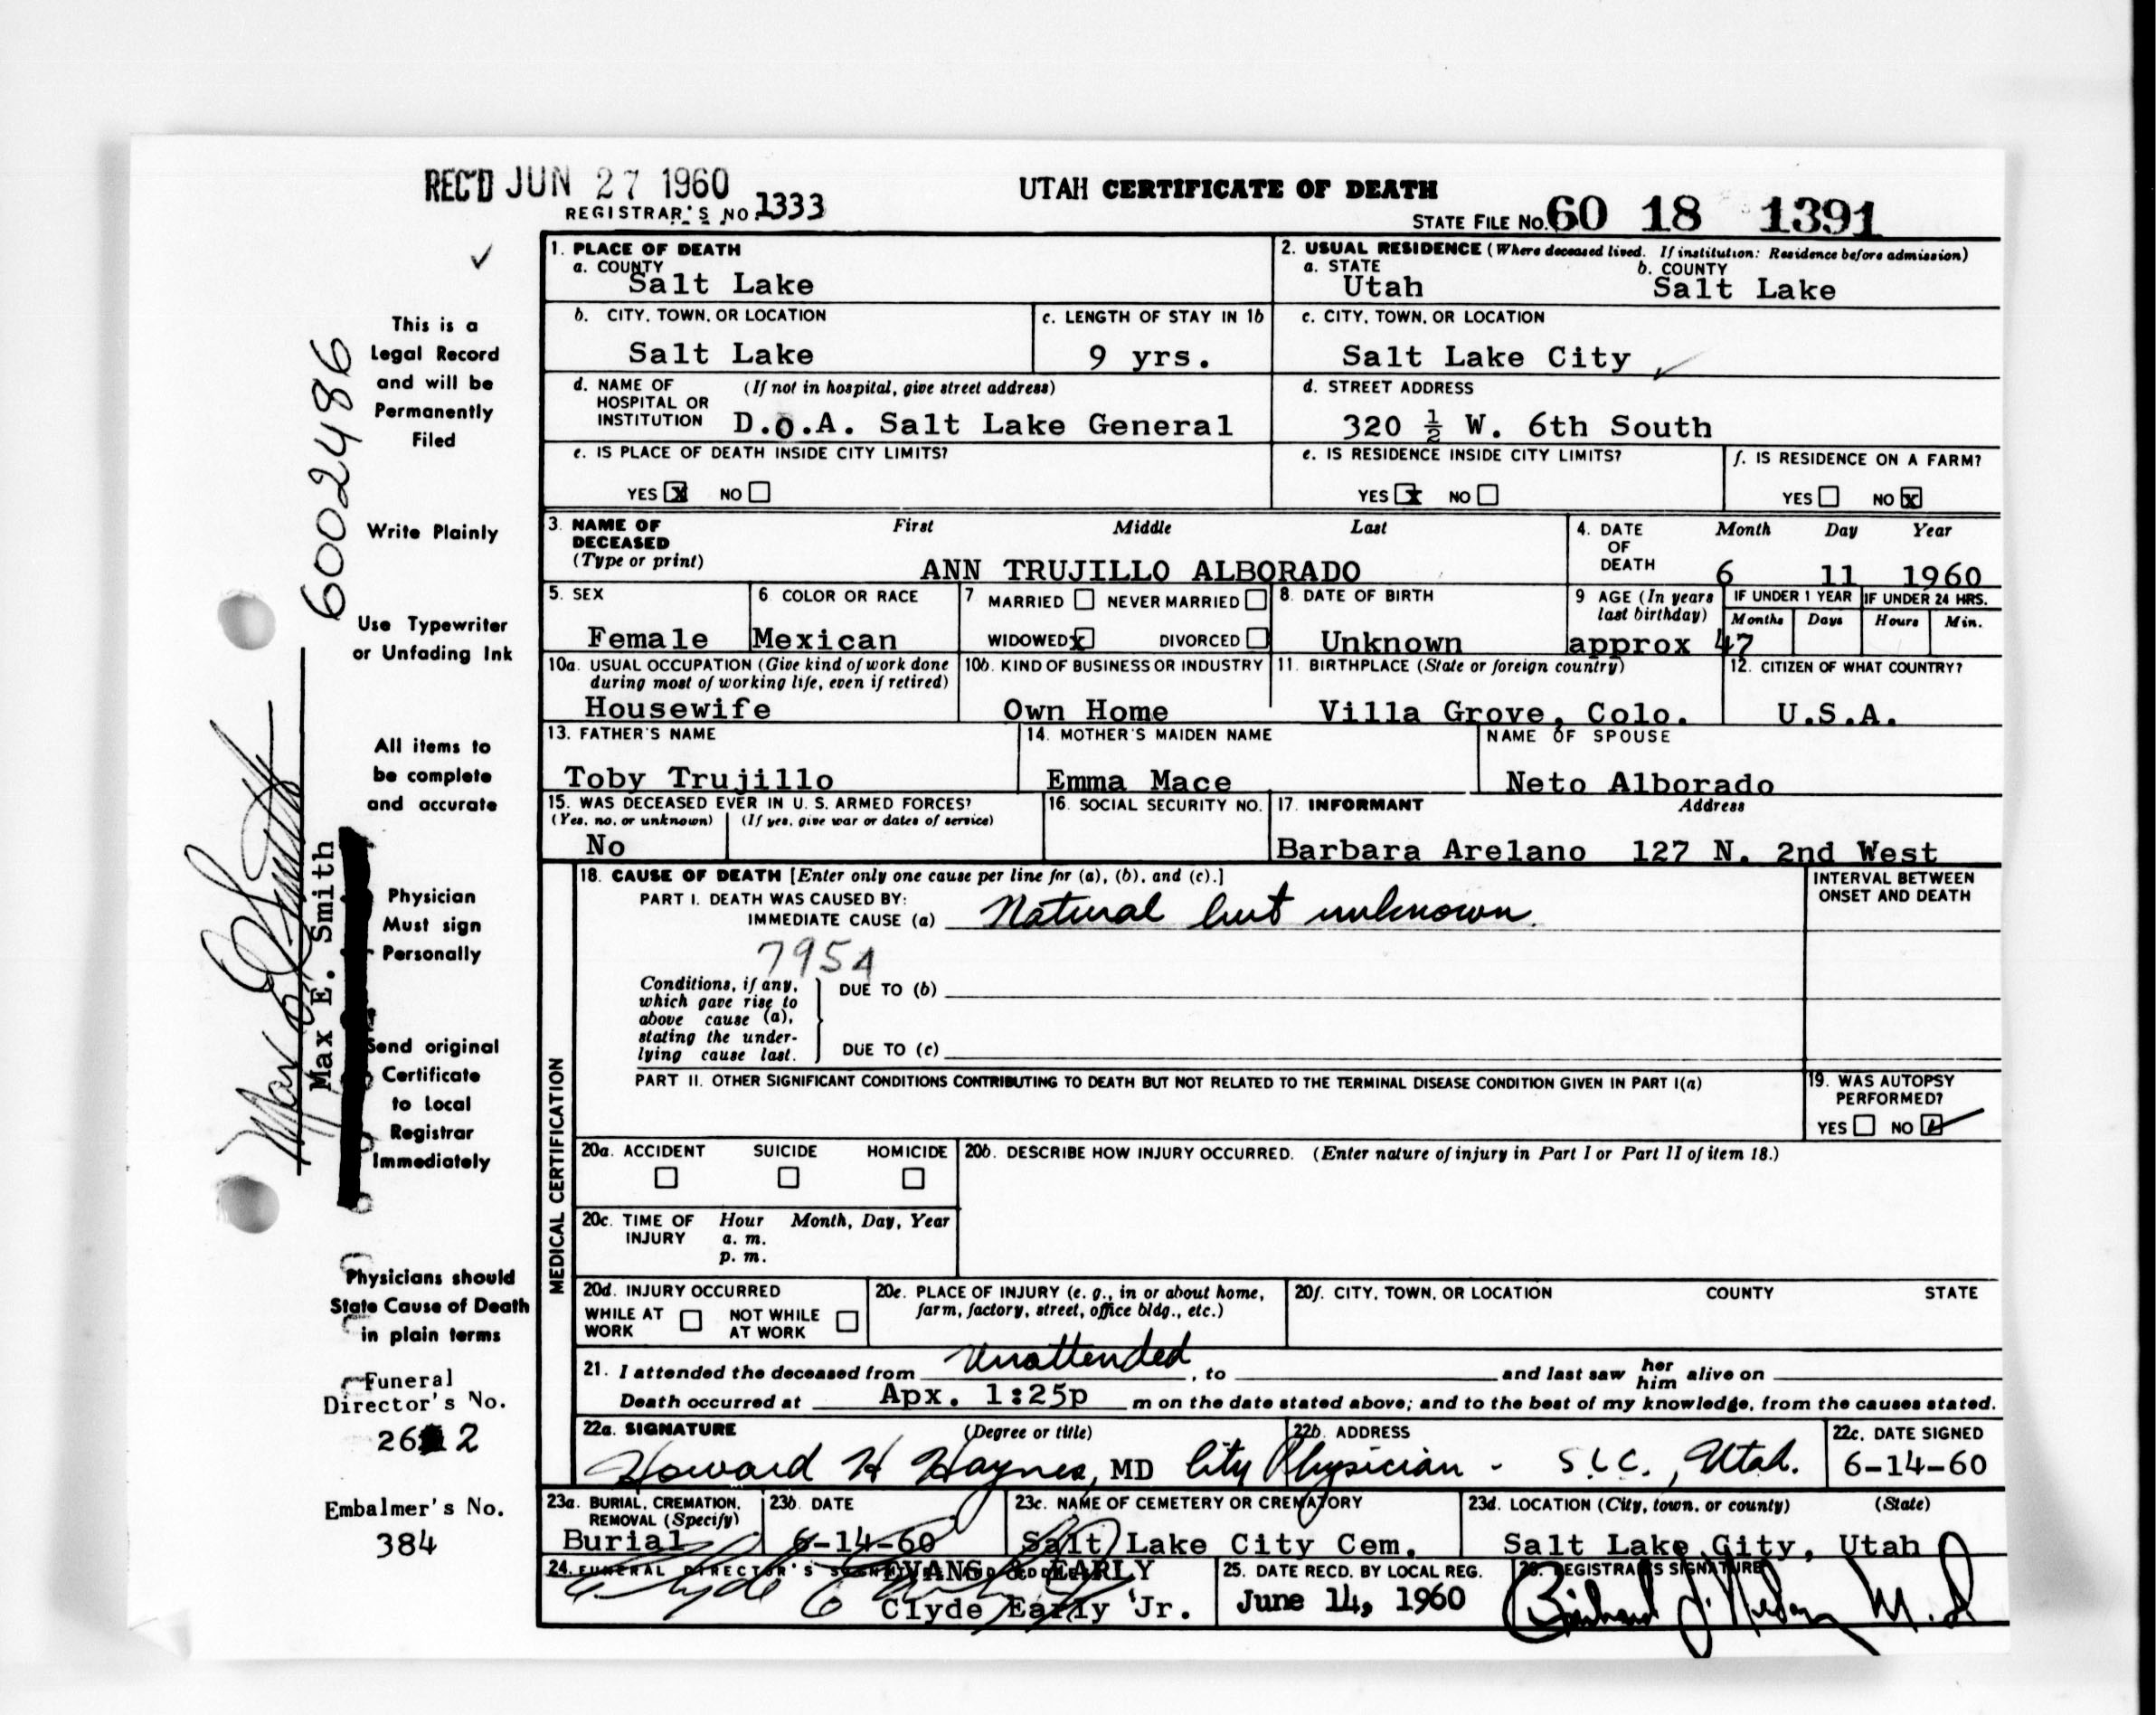 REC'D JUN 27 1960
REGISTRAR'S NO. 1333
UTAH CERTIFICATE OF DEATH
STATE FILE NO. 60 18 1391
6002486
This is a
Legal Record
and will be
Permanently
Filed
Write Plainly
Use Typewriter
or Unfading Ink
All items to
be complete
and accurate
Physician
Must sign
Personally
Send original
Certificate
to Local
Registrar
Immediately
Physicians should
State Cause of Death
in plain terms
Funeral
Director's No.
26 2
Embalmer's No.
384
Max E. Smith
Max E. Smith
1. PLACE OF DEATH
a. COUNTY
Salt Lake
b. CITY, TOWN, OR LOCATION
Salt Lake
c. LENGTH OF STAY IN 1b
9 yrs.
d. NAME OF (If not in hospital, give street address)
HOSPITAL OR
INSTITUTION D.O.A. Salt Lake General
e. IS PLACE OF DEATH INSIDE CITY LIMITS?
YES X NO
2. USUAL RESIDENCE (Where deceased lived. If institution: Residence before admission)
a. STATE b. COUNTY
Utah Salt Lake
c. CITY, TOWN, OR LOCATION
Salt Lake City
d. STREET ADDRESS
320 ½ W. 6th South
e. IS RESIDENCE INSIDE CITY LIMITS?
YES X NO
f. IS RESIDENCE ON A FARM?
YES NO X
3. NAME OF DECEASED First Middle Last
(Type or print)
ANN TRUJILLO ALBORADO
4. DATE OF DEATH Month Day Year
6 11 1960
5. SEX
Female
6 COLOR OR RACE
Mexican
7 MARRIED NEVER MARRIED
WIDOWED X DIVORCED
8. DATE OF BIRTH
Unknown
9 AGE (In years last birthday)
approx 47
IF UNDER 1 YEAR IF UNDER 24 HRS.
Months Days Hours Min.
10a. USUAL OCCUPATION (Give kind of work done
during most of working life, even if retired)
Housewife
10b. KIND OF BUSINESS OR INDUSTRY
Own Home
11. BIRTHPLACE (State or foreign country)
Villa Grove, Colo.
12. CITIZEN OF WHAT COUNTRY?
U.S.A.
13. FATHER'S NAME
Toby Trujillo
14. MOTHER'S MAIDEN NAME
Emma Mace
NAME OF SPOUSE
Neto Alborado
15. WAS DECEASED EVER IN U. S. ARMED FORCES?
(Yes, no, or unknown) (If yes, give war or dates of service)
No
16. SOCIAL SECURITY NO.
17. INFORMANT Address
Barbara Arelano 127 N. 2nd West
MEDICAL CERTIFICATION
18. CAUSE OF DEATH [Enter only one cause per line for (a), (b), and (c).]
PART I. DEATH WAS CAUSED BY:
IMMEDIATE CAUSE (a) Natural but unknown.
7954
Conditions, if any,
which gave rise to
above cause (a),
stating the under-
lying cause last.
DUE TO (b)
DUE TO (c)
INTERVAL BETWEEN
ONSET AND DEATH
PART II. OTHER SIGNIFICANT CONDITIONS CONTRIBUTING TO DEATH BUT NOT RELATED TO THE TERMINAL DISEASE CONDITION GIVEN IN PART I(a)
19. WAS AUTOPSY
PERFORMED?
YES NO
20a. ACCIDENT SUICIDE HOMICIDE
20b. DESCRIBE HOW INJURY OCCURRED. (Enter nature of injury in Part I or Part II of item 18.)
20c. TIME OF INJURY Hour Month, Day, Year
a. m.
p. m.
20d. INJURY OCCURRED
WHILE AT WORK NOT WHILE AT WORK
20e. PLACE OF INJURY (e. g., in or about home,
farm, factory, street, office bldg., etc.)
20f. CITY, TOWN, OR LOCATION COUNTY STATE
21. I attended the deceased from Unattended, to and last saw her him alive on
Death occurred at Apx. 1:25p m on the date stated above; and to the best of my knowledge, from the causes stated.
22a. SIGNATURE (Degree or title)
Howard H Haynes, MD City Physician -
22b. ADDRESS
SLC., Utah.
22c. DATE SIGNED
6-14-60
23a. BURIAL, CREMATION,
REMOVAL (Specify)
Burial
23b. DATE
6-14-60
23c. NAME OF CEMETERY OR CREMATORY
Salt Lake City Cem.
23d. LOCATION (City, town, or county) (State)
Salt Lake City, Utah
24. FUNERAL DIRECTOR'S
EVANS & EARLY
Clyde Early Jr.
25. DATE RECD. BY LOCAL REG.
June 14, 1960
26. REGISTRAR'S SIGNATURE
M.D